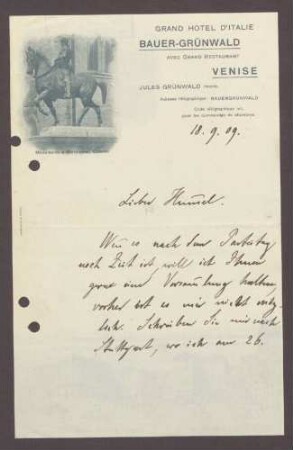 GRAND HOTEL D'ITALIE
BAUER-GRÜNWALD
AVEC GRAND RESTAURANT
VENISE
JULES GRÜNWALD
Adresse télégraphique: BAUERGRÜNWALD
18.9.09.
Lieber Hummel.
Wenn es nach dem Parteitag
noch Zeit ist, will ich Ihnen
gerne eine Versammlung halten,
vorher ist es mir nicht mög-
lich. Schreiben Sie mir nach
Stuttgart, wo ich am 26.